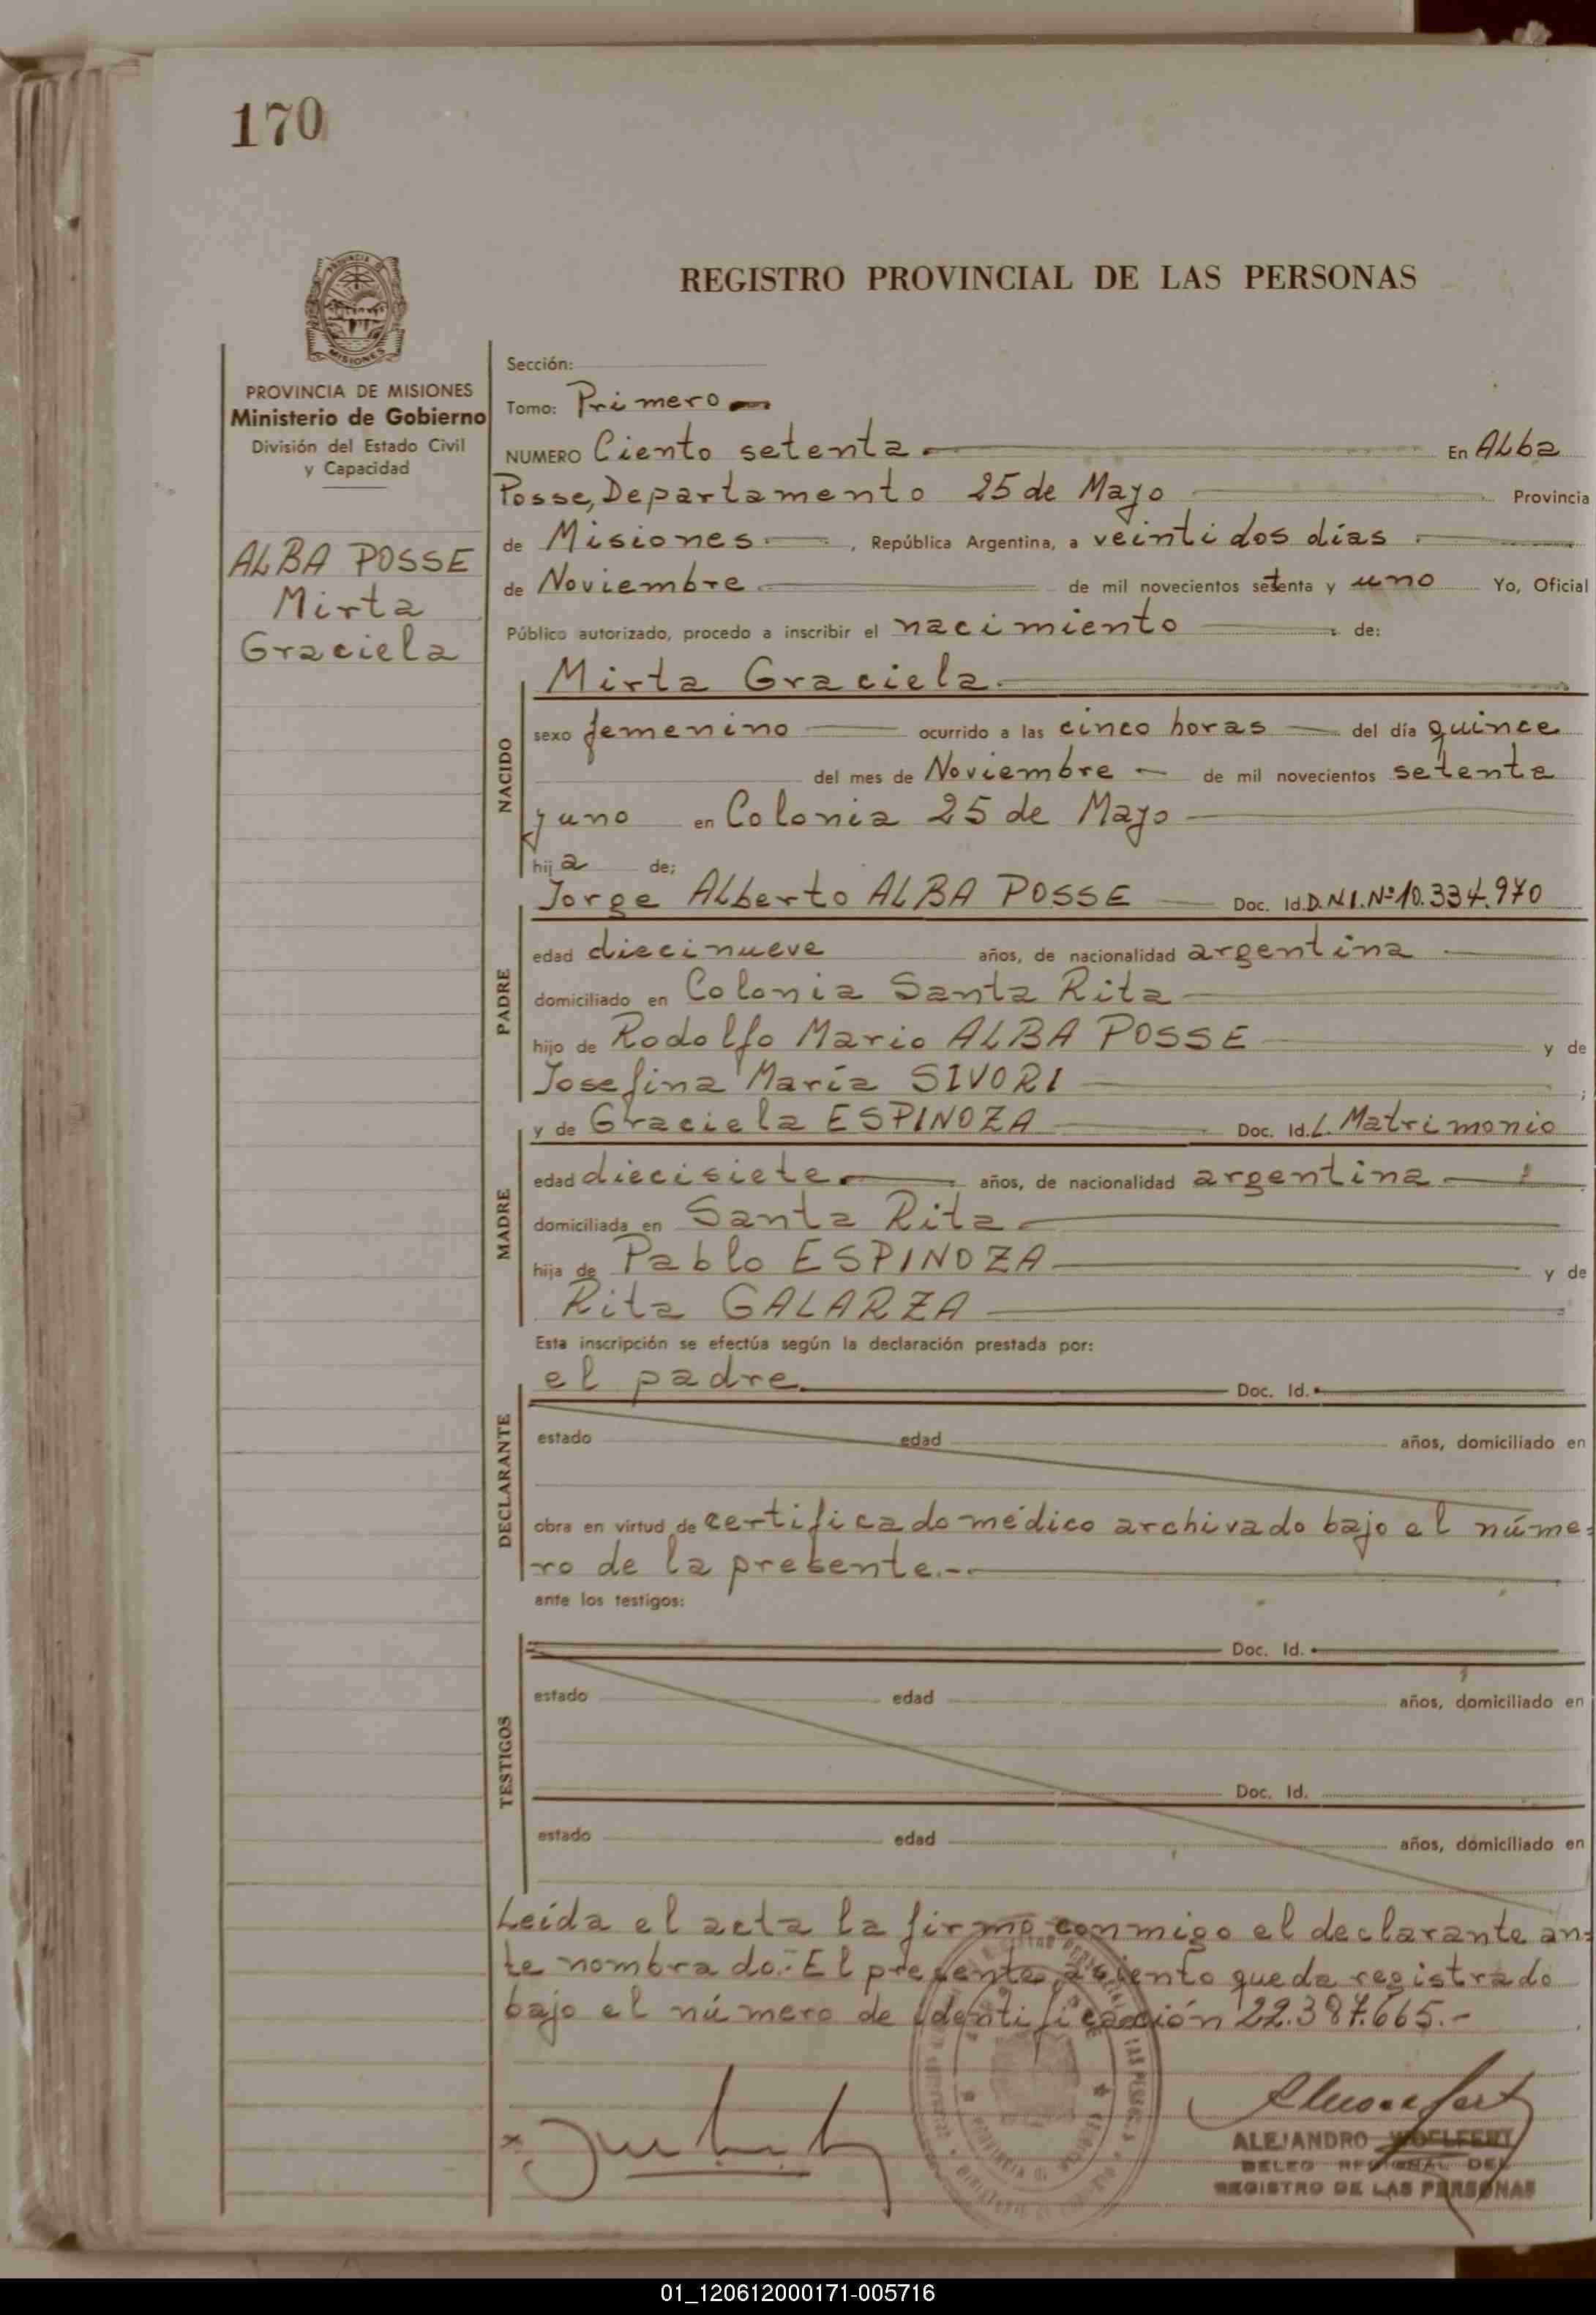 170
PROVINCIA DE
MISIONES
REGISTRO PROVINCIAL DE LAS PERSONAS
PROVINCIA DE MISIONES
Ministerio de Gobierno
División del Estado Civil
y Capacidad
ALBA POSSE
Mirta
Graciela
Sección:
Tomo: Primero
NUMERO Ciento setenta En Alba
Posse, Departamento 25 de Mayo Provincia
de Misiones , República Argentina, a veintidos días
de Noviembre de mil novecientos setenta y uno Yo, Oficial
Público autorizado, procedo a inscribir el nacimiento de:
Mirta Graciela
NACIDO
sexo femenino ocurrido a las cinco horas del día quince
del mes de Noviembre de mil novecientos setenta
y uno en Colonia 25 de Mayo
hija de:
Jorge Alberto ALBA POSSE Doc. Id. D.N.I. Nº 10.334.970
PADRE
edad diecinueve años, de nacionalidad argentina
domiciliado en Colonia Santa Rita
hijo de Rodolfo Mario ALBA POSSE y de
Josefina María SIVORI ;
y de Graciela ESPINOZA Doc. Id. L. Matrimonio
MADRE
edad diecisiete años, de nacionalidad argentina
domiciliada en Santa Rita
hija de Pablo ESPINOZA y de
Rita GALARZA
Esta inscripción se efectúa según la declaración prestada por:
el padre Doc. Id.
DECLARANTE
estado edad años, domiciliado en
obra en virtud de certificado médico archivado bajo el núme=
ro de la presente.-
ante los testigos:
Doc. Id.
TESTIGOS
estado edad años, domiciliado en
Doc. Id.
estado edad años, domiciliado en
Leída el acta la firma conmigo el declarante an=
te nombrado.- El presente asiento queda registrado
bajo el número de identificación 22.387.665.-
ALEJANDRO WOELFERT
DELEG REGIONAL DEL
REGISTRO DE LAS PERSONAS
01_120612000171-005716